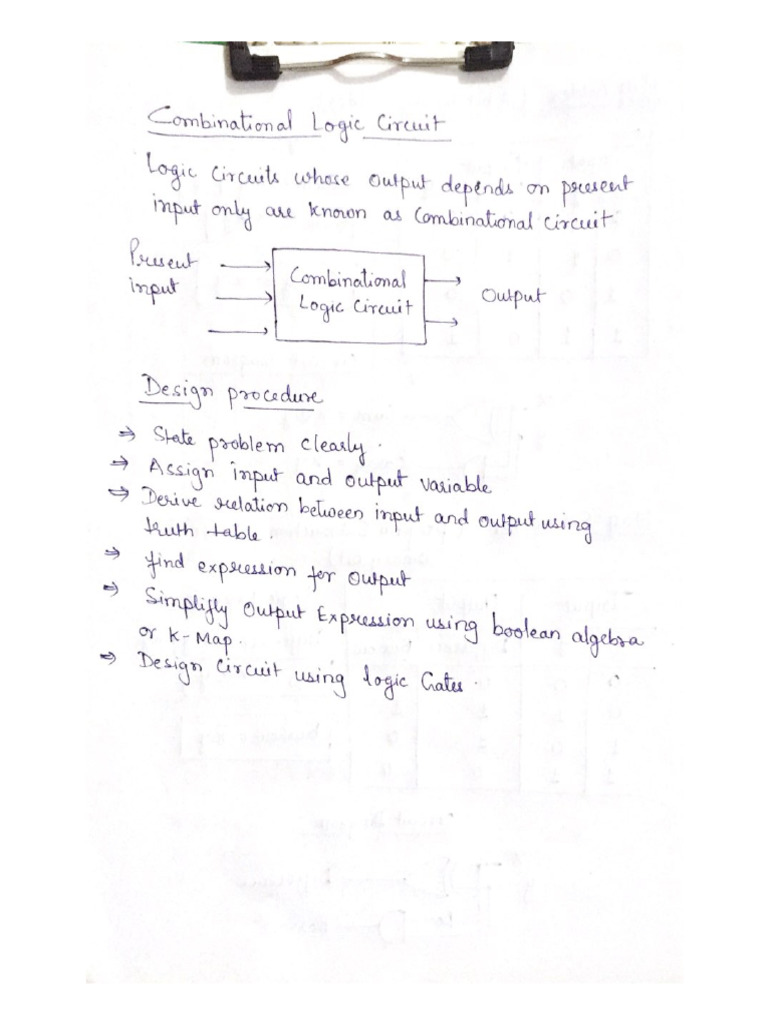 Combinational Logic Circuit
Logic Circuits whose output depends on present
input only are known as Combinational Circuit
Present
input
Combinational
Logic Circuit
Output
Design procedure
⇒ State problem clearly.
⇒ Assign input and output variable
⇒ Derive relation between input and output using
truth table.
⇒ find expression for output
⇒ Simplifly output Expression using boolean algebra
or K-Map.
⇒ Design Circuit using logic Gates.